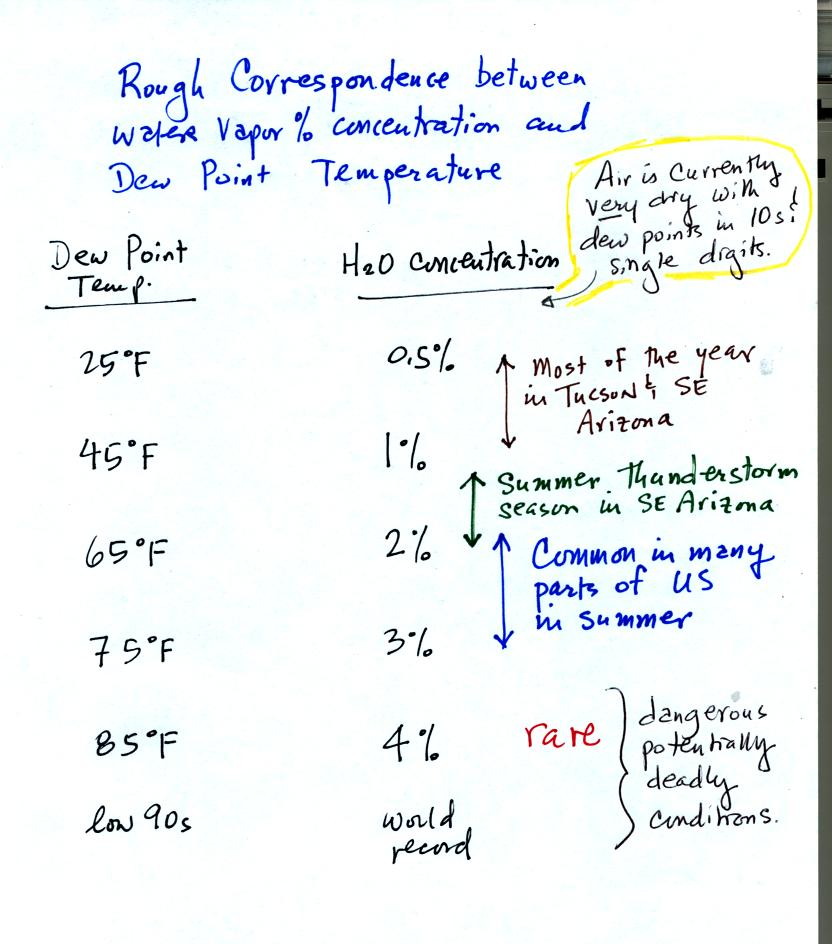 Rough Correspondence between
water vapor % concentration and
Dew Point Temperature
Air is currently
very dry with
dew points in 10s &
single digits.
Dew Point
Temp.
H2O concentration
25°F 0.5%
Most of the year
in Tucson & SE
Arizona
45°F 1%
Summer Thunderstorm
season in SE Arizona
65°F 2%
Common in many
parts of US
in summer
75°F 3%
85°F 4% rare
dangerous
potentially
deadly
conditions.
low 90s would
record